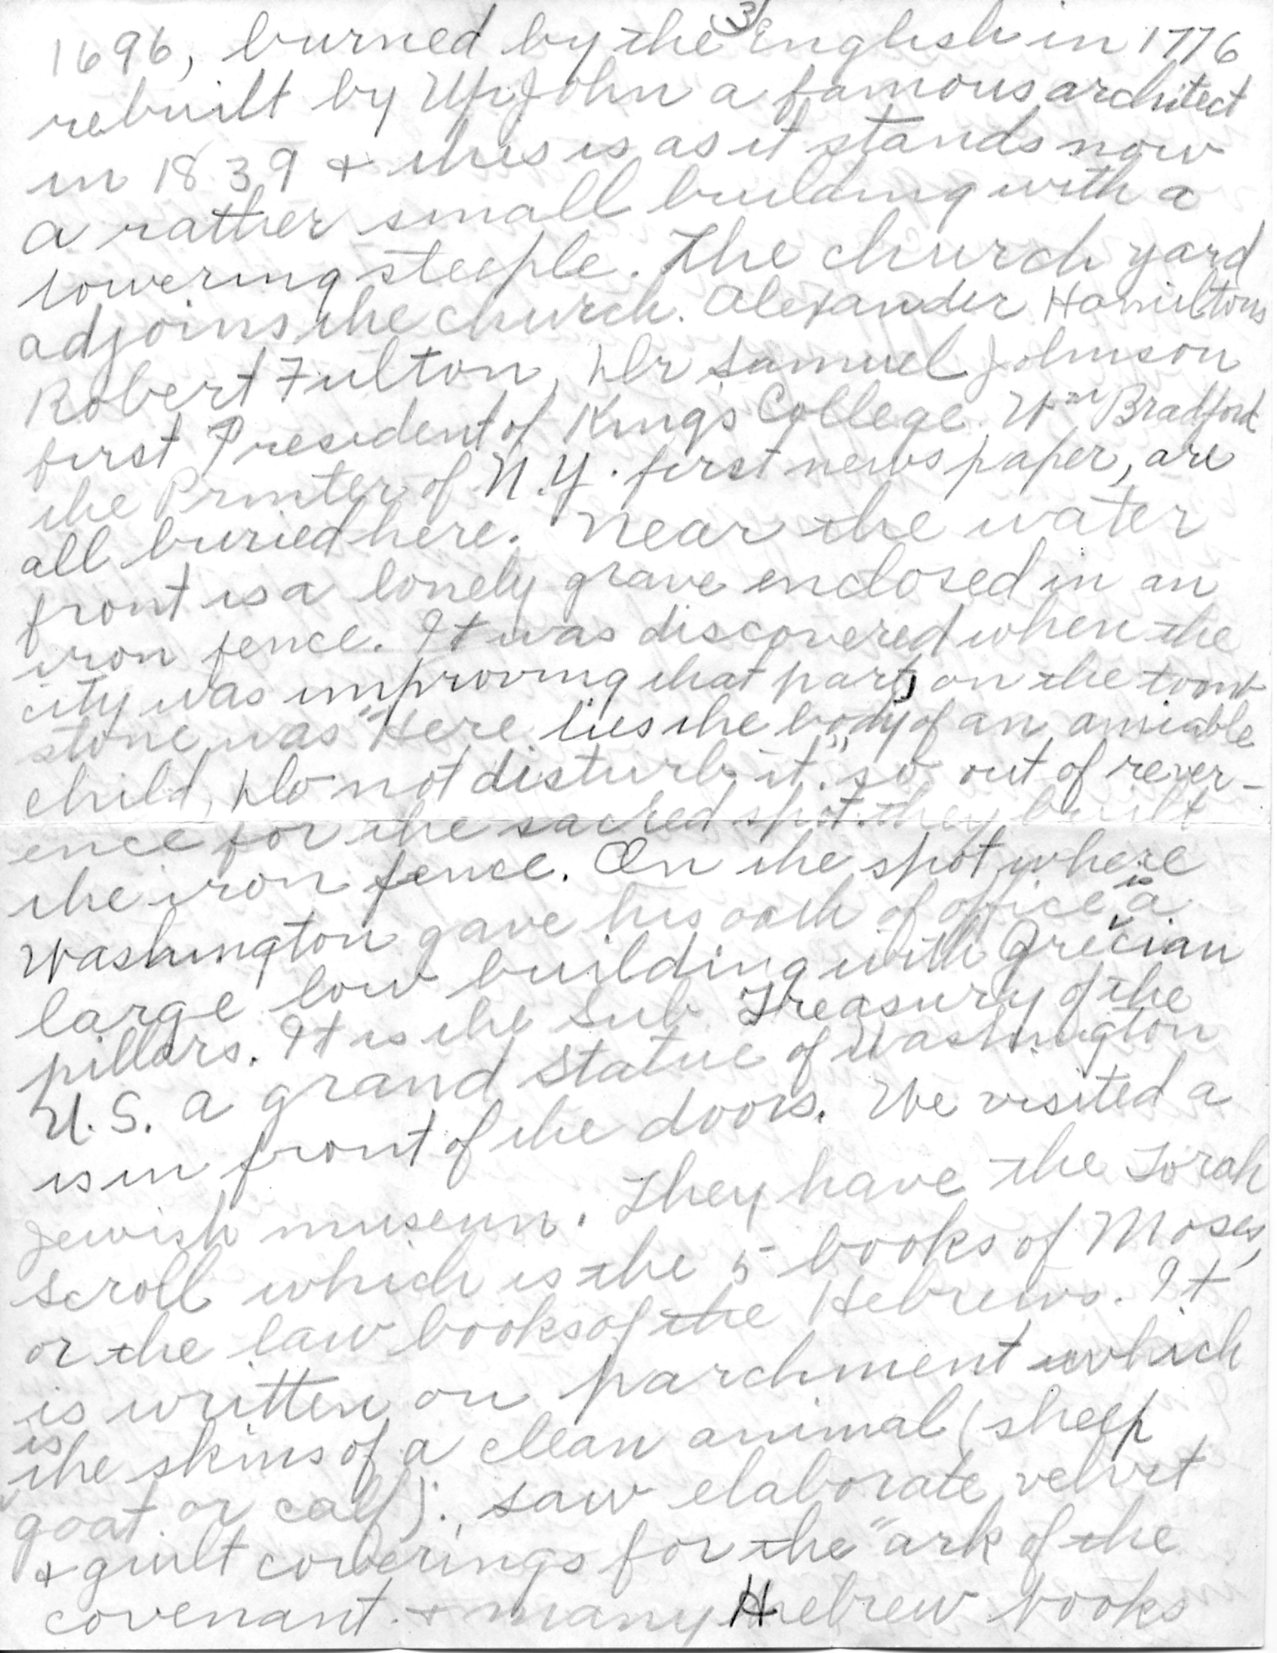 3
1696, burned by the English in 1776
rebuilt by UpJohn a famous architect
in 1839 & this is as it stands now
a rather small building with a
towering steeple. The church yard
adjoins the church. Alexander Hamiltons
Robert Fulton, Dr Samuel Johnson
first President of King's College. Wm Bradford
the Printer of N.Y. first newspaper, are
all buried here. Near the water
front is a lonely grave enclosed in an
iron fence. It was discovered when the
city was improving that part, on the tomb
stone was "Here lies the body of an amiable
child, Do not disturb it." so out of rever-
ence for the sacred spot they built
the iron fence. On the spot where
Washington gave his oath of office is a
large low building with Grecian
pillars. It is the Sub Treasury of the
U.S. a grand statue of Washington
is in front of the doors. We visited a
Jewish museum. They have the Torah
scroll which is the 5 books of Moses,
or the law books of the Hebrews. It
is written on parchment which
is the skins of a clean animal (sheep
goat or calf)., saw elaborate velvet
& guilt coverings for the "ark of the
covenant. & many Hebrew books